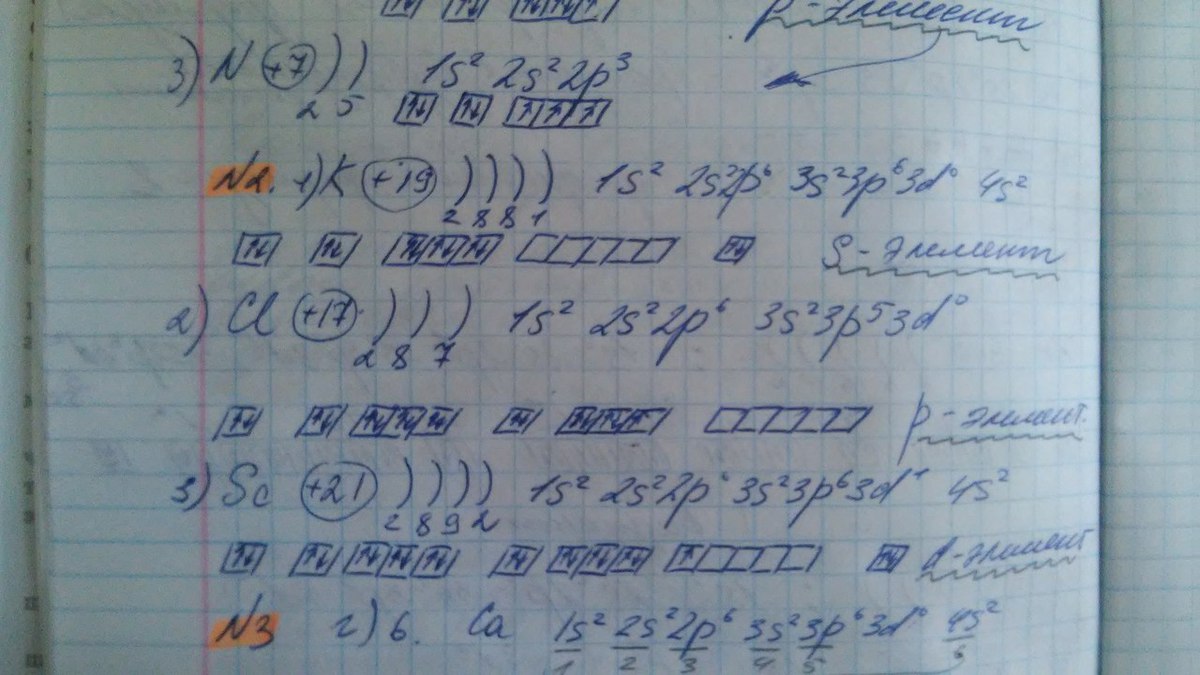 p-элемент
3) N (+7) ) ) 1s² 2s² 2p³
2 5
↑↓ ↑↓ ↑ ↑ ↑
N2. 1) K (+19) ) ) ) ) 1s² 2s²2p⁶ 3s²3p⁶3d⁰ 4s²
2 8 8 1
↑↓ ↑↓ ↑↓ ↑↓ ↑↓ ↑↓ S-элемент
2) Cl (+17) ) ) ) 1s² 2s²2p⁶ 3s²3p⁵3d⁰
2 8 7
↑↓ ↑↓ ↑↓ ↑↓ ↑↓ ↑↓ ↑↓ ↑↓ ↑ p-элемент.
3) Sc (+21) ) ) ) ) 1s² 2s²2p⁶ 3s²3p⁶3d¹ 4s²
2 8 9 2
↑↓ ↑↓ ↑↓ ↑↓ ↑↓ ↑↓ ↑↓ ↑↓ ↑↓ ↑ ↑↓ d-элемент
N3 г) 6. Ca 1s² 2s²2p⁶ 3s²3p⁶3d⁰ 4s²
1 2 3 4 5 6